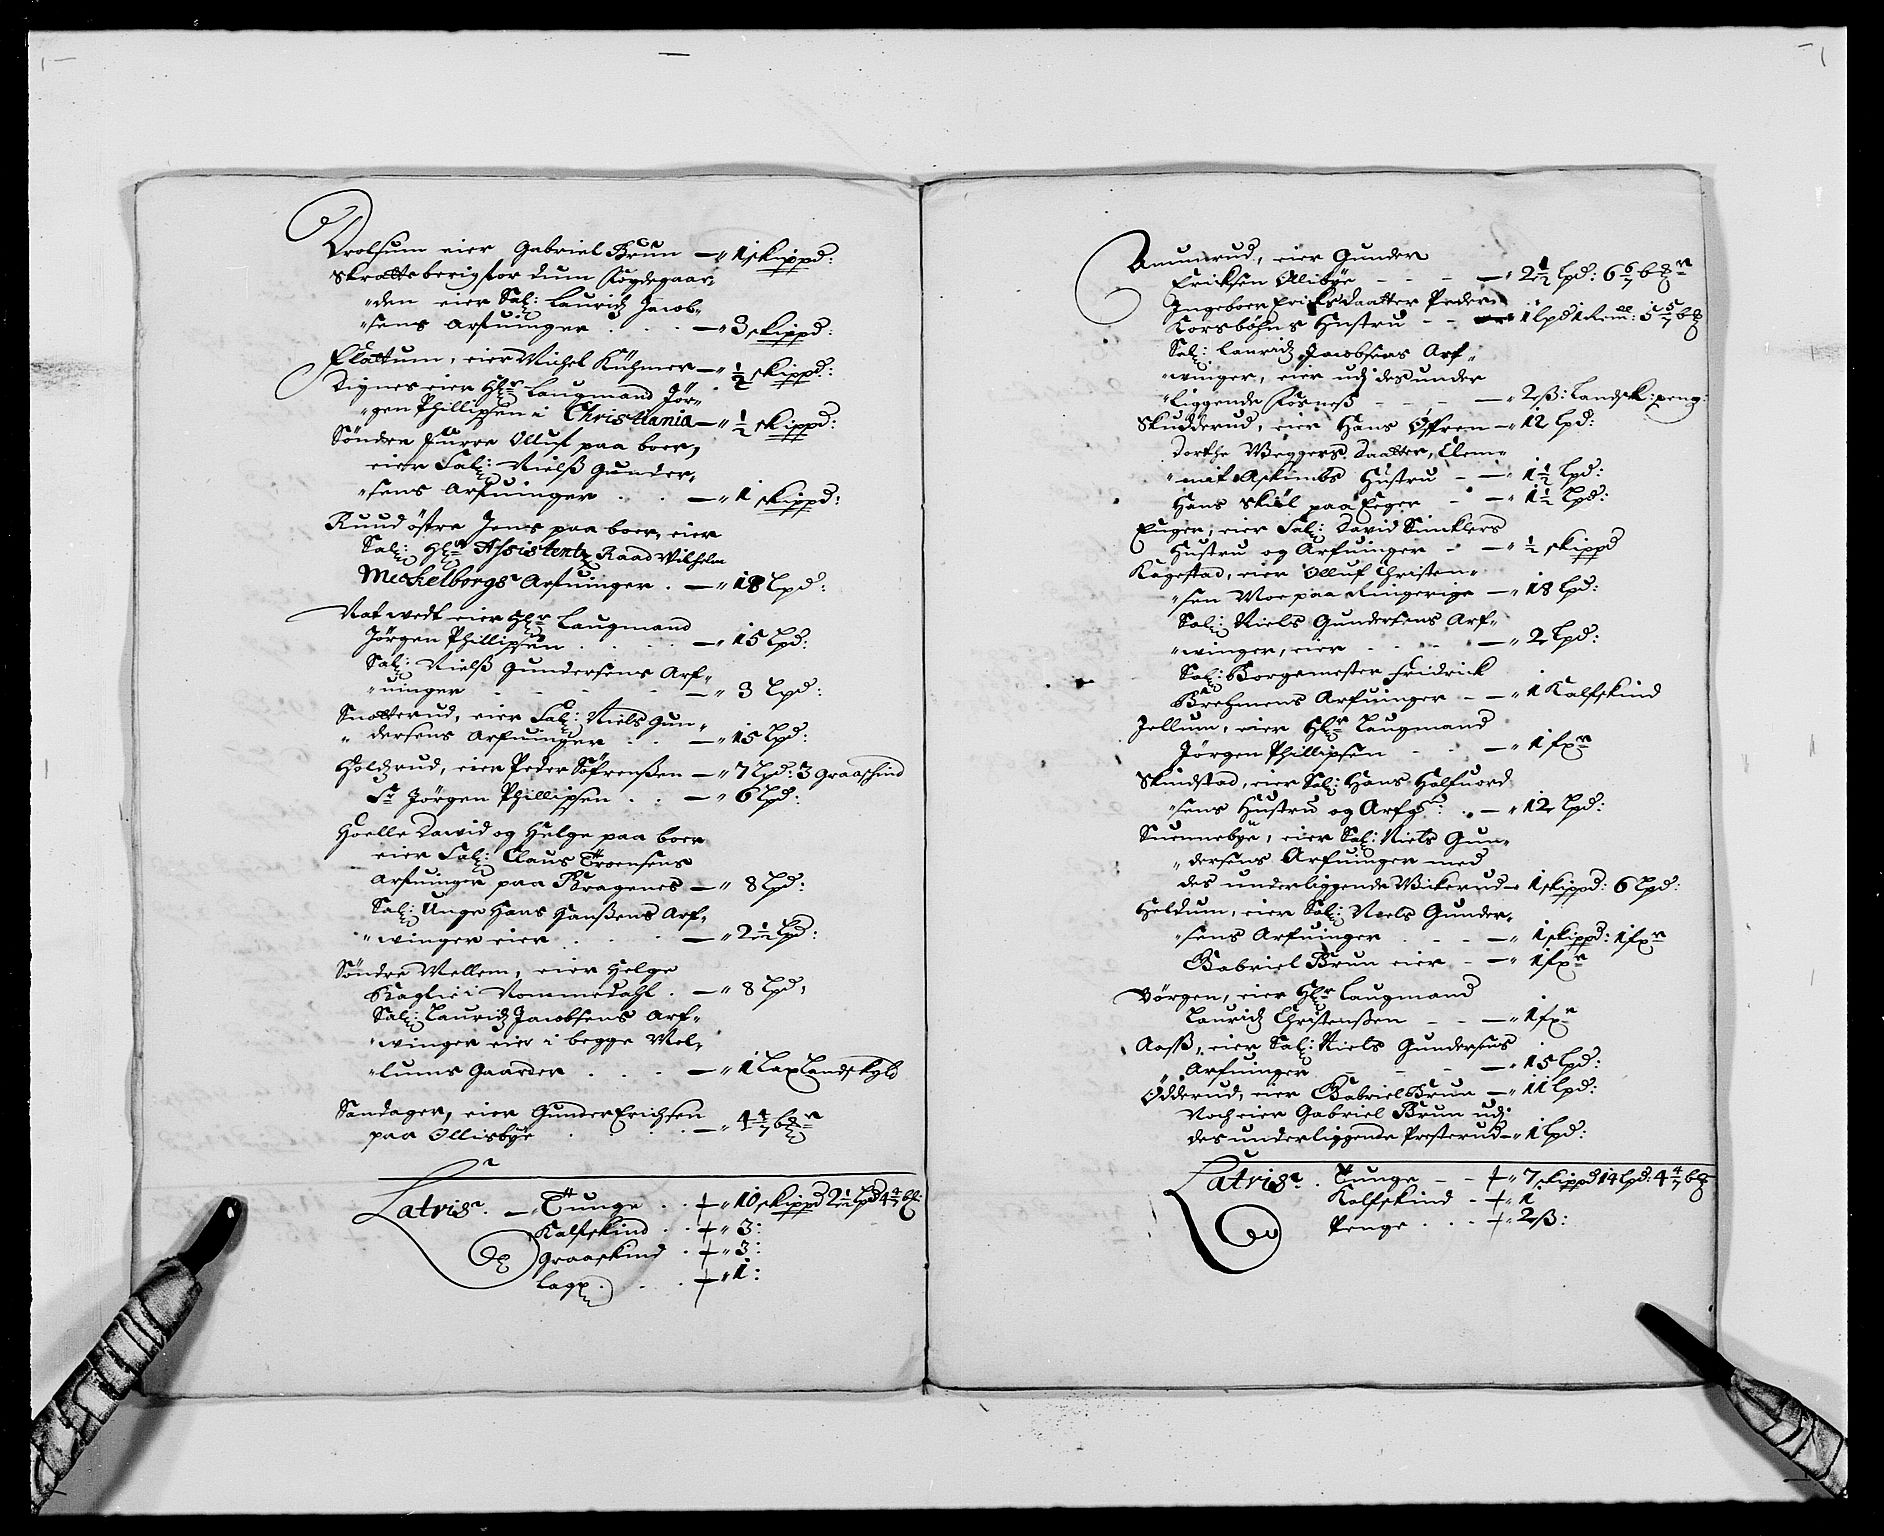 Drolsum eier Gabriel Brun — " 1 skippd:
Skratteberig for dum Kogdegaar=
"den eier Sal: Lauridz Jacob=
"sens Arfuinger . . . — " 3 skippd:
Flattum, eier Michel Kühmer — " ½ skippd:
eier Hl:r Laugmand Jör=
"gen Phillipsen i Christiania — " ½ skippd:
Söndre Furre Olluf paa boer,
eier Sal: Nielß Gunder=
"sens Arfuinger . . . — " 1 skippd:
Ruud östre Jens paa boer, eier
Sal: Hl:r Assistentz Raad Vilhelm
Meckelborgs Arfuinger . — " 18 lpd:
Natwedt eier Hl:r Laugmand
Jörgen Phillipsen . . . . — " 15 lpd:
Sal: Nielß Gundersens Arf=
"uinger - - - — " 3 lpd:
Snatterud, eier Sal: Niels Gun=
" dersens Arfuinger . . . — " 15 lpd:
Holdzrud, eier Peder Söfrenßen — " 7 lpd: 3 Graaskind
Sr Jörgen Phillipsen . . . — " 6 lpd:
Hoelle David og Helge paa boer
eier Sal: Claus Troensens
Arfuinger paa Bragenes — " 8 lpd:
Sal: Unge Hans Hanßens Arf=
"winger eier . . . — " 2½ lpd:
Söndre Mellem, eier Helge
Raglie i Nommedahl . — " 8 lpd:
Sal: Lauridz Jacobsens Arf=
"winger eier i begge Mel=
"lums Gaarder . . . — " 1 Lax Landskyld
Sandager, eier Gunder Erichsen
paa Ollisbye . . . . — " 4 4/7 bß:r
Latris:r . — " Tunge . . + " 10 skippd 2½ lpd 4 4/7 bß:
Kalfskind . . + " 3:
Graaskind . + " 3:
Lagx . . . + " 1:
Amunrud, eier Gunder
Eriksen Ollibye - - - — " 2½ lpd: 6 6/7 bß:r
Ingeboer Eriksdaatter Peder
Korsböhns Hustru - - " 1 lpd 1 Rem:ll: 5 5/7 bß
Sal: Lauridz Jacobsens Arf=
"winger, eier udj des under
"liggende Kosneß - - - — " 2 ß: Landsk: peng:
Skudderud, eier Hans Öfren — " 12 lpd:
Dorthe Weggers Daatter, Clem=
"met Askimbs Hustru - — " 1½ lpd:
Hans Skiöl paa Eeger - — " 1½ lpd:
Enger, eier Sal: David Sinklers
Hustru og Arfuinger - — " ½ skippd
Kagestad, eier Olluf Christen=
"sen Moe paa Ringerige — " 18 lpd:
Sal: Niels Gundersens Arf=
"winger, eier . . . — " 2 lpd:
Sal: Borgemester Fridrick
Brehmens Arfuinger - — " 1 Kalfskind
Jellum, eier Hl:r Laugmand
Jörgen Phillipsen - - — " 1 fxr
Skindstad, eier Sal: Hans Halfuord
"sens Hustru og Arfg: . — " 12 lpd:
Suennebye, eier Sal: Niels Gun=
"dersens Arfuinger med
des underliggende Wikerud — 1 skippd: 6 lpd:
Heldum, eier Sal: Niels Gunder=
"sens Arfuinger . . . — " 1 skippd: 1 fxr
Gabriel Brun eier - — " 1 fxr
Börgen, eier Hl:r Laugmand
Lauridz Christenßen - - — " 1 fxr
Aasß, eier Sal: Niels Gundersens
" Arfuinger - - - — " 15 lpd:
Ödderud, eier Gabriel Brun — " 11 lpd:
Noch eier Gabriel Brun udj
des underliggende Presterud — " 1 lpd:
Latris:r . Tunge - - + " 7 skippd 14 lpd: 4 4/7 bß
Kalfskind - + " 1
Penge . . . + " 2 ß: